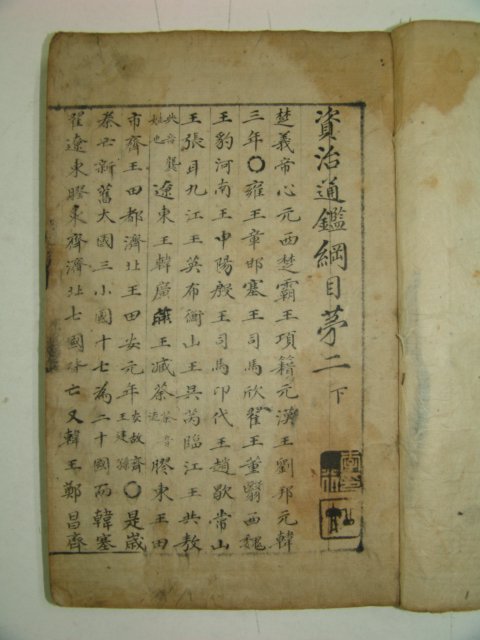 資治通鑑綱目苐二 下
楚義帝心元西楚霸王項籍元漢王劉邦元韓
三年〇雍王章邯塞王司馬欣翟王董翳西魏
王豹河南王申陽殷王司馬卬代王趙歇常山
王張耳九江王英布衡山王吳芮臨江王共敖
共音龔 敖也 遼東王韓廣燕王臧荼荼音 膠東王田
市齊王田都濟北王田安元年安故齊王建孫〇是歲
秦亡新舊大國三小國十七為二十國而韓塞
翟遼東膠東齊濟北七國皆亡又韓王鄭昌齊